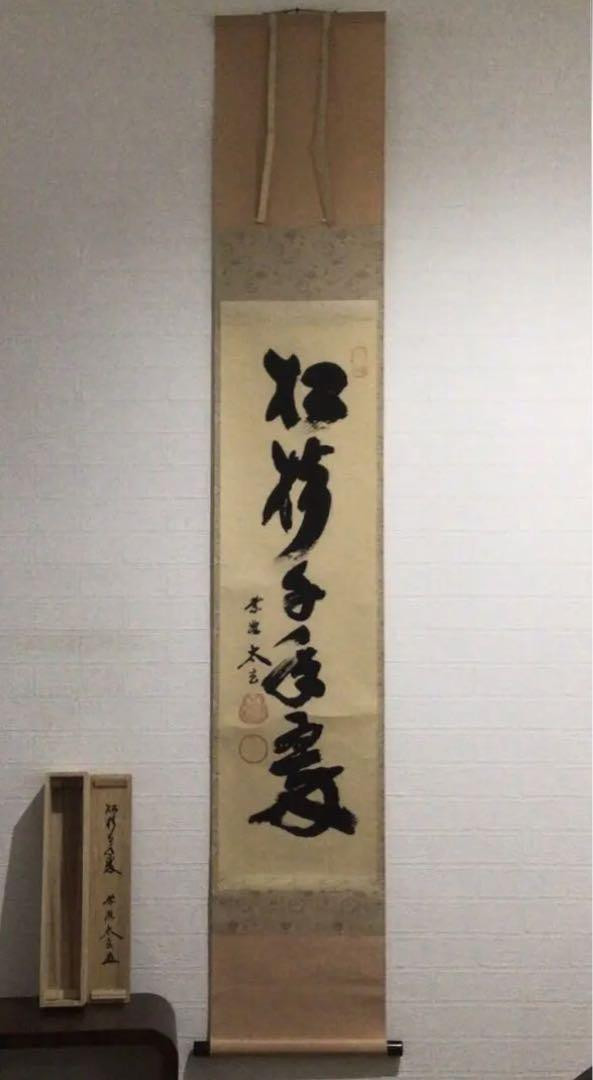 松樹千年翠
紫野 太玄
松樹千年翠 紫野 太玄